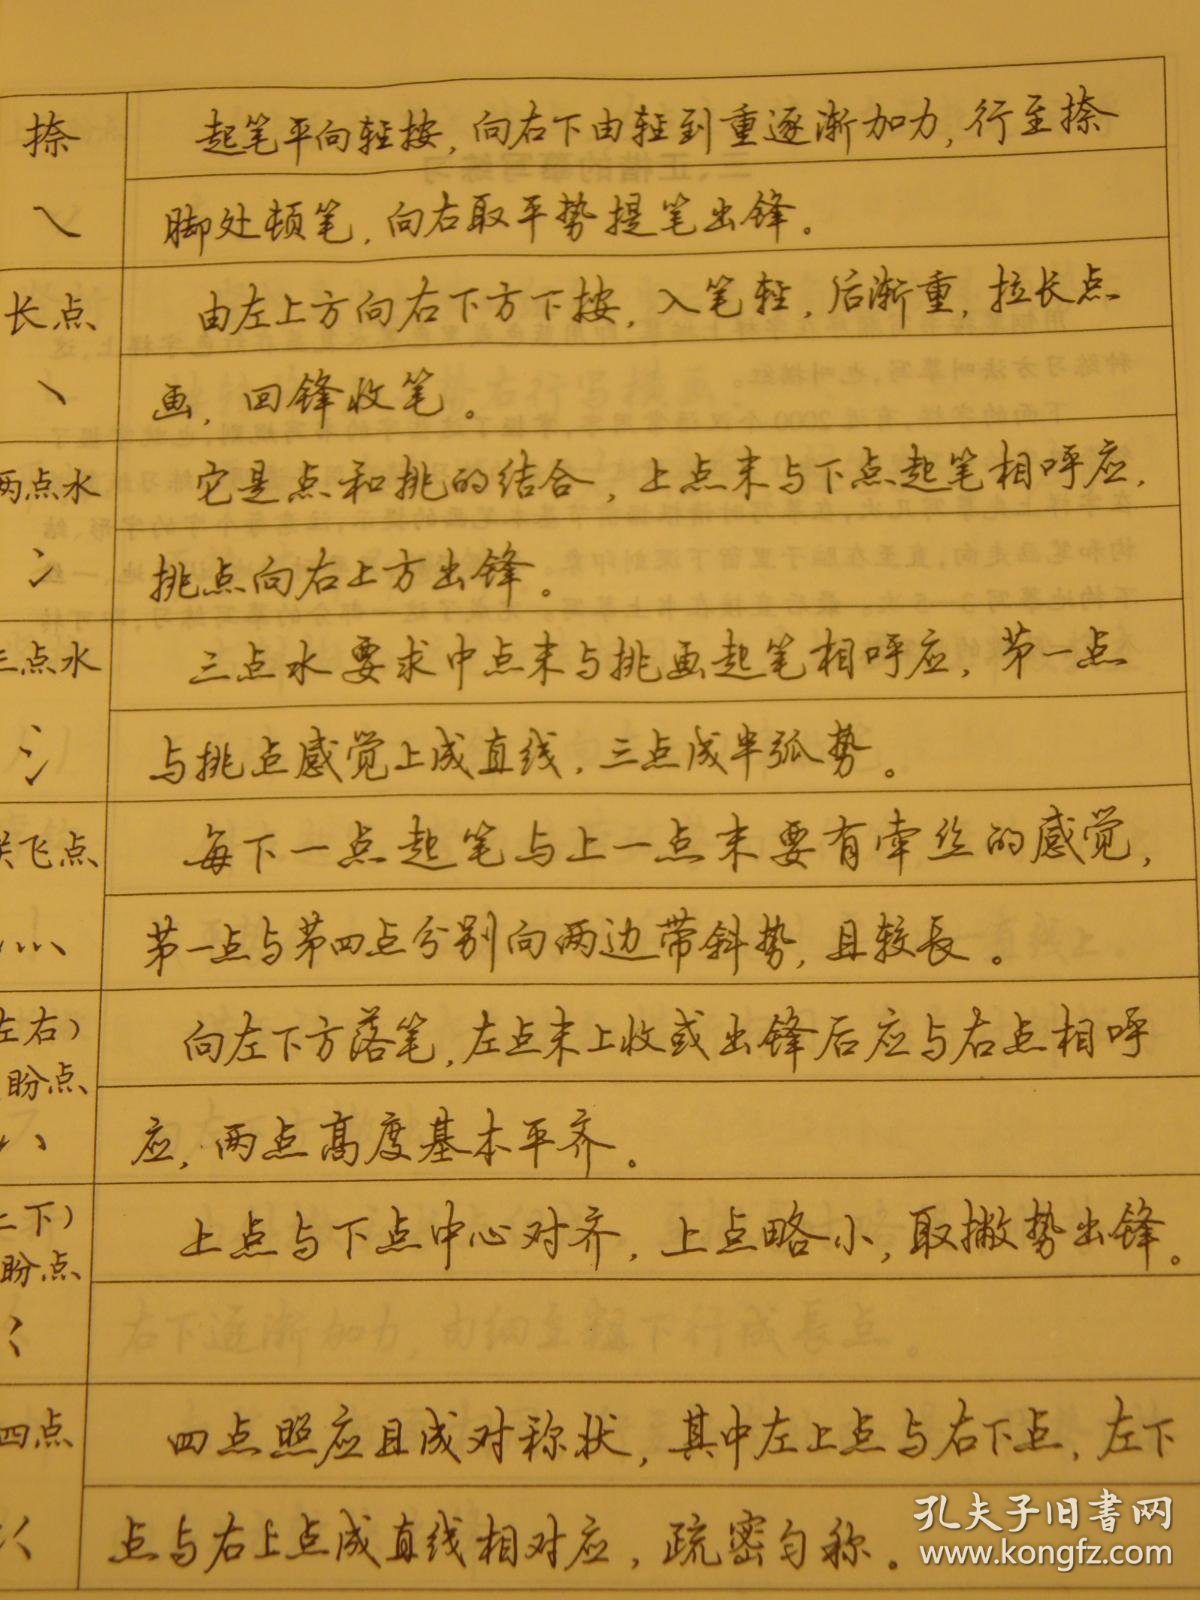 捺
起笔平向轻按，向右下由轻到重逐渐加力，行至捺
脚处顿笔，向右取平势提笔出锋。
长点
由左上方向右下方下按，入笔轻，后渐重，拉长点
画，回锋收笔。
两点水
它是点和挑的结合，上点末与下点起笔相呼应，
挑点向右上方出锋。
三点水
三点水要求中点末与挑画起笔相呼应，第一点
与挑点感觉上成直线，三点成半弧势。
飞点
每下一点起笔与上一点末要有牵丝的感觉，
第一点与第四点分别向两边带斜势，且较长。
左右）
盼点
向左下方落笔，左点末上收或出锋后应与右点相呼
应，两点高度基本平齐。
上下）
盼点
上点与下点中心对齐，上点略小，取撇势出锋。
四点
四点照应且成对称状，其中左上点与右下点，左下
点与右上点成直线相对应，疏密匀称。
孔夫子旧书网
www.kongfz.com